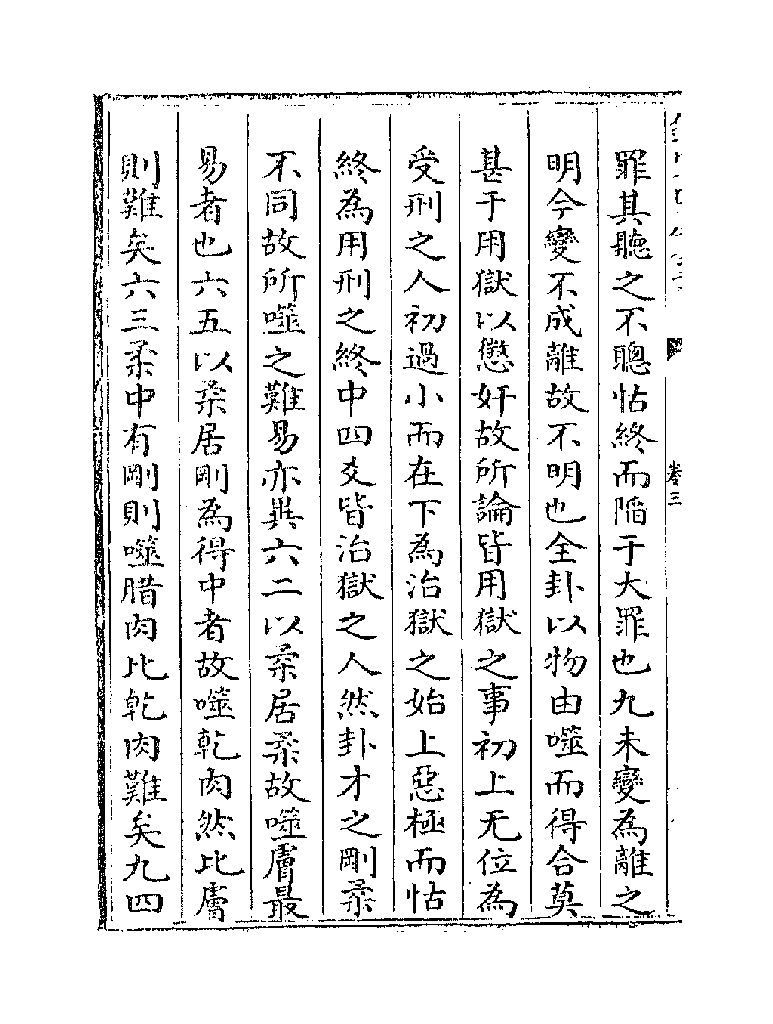 卷三
罪其聽之不聰怙終而陷于大罪也九未變為離之
明今變不成離故不明也全卦以物由噬而得合莫
甚于用獄以懲奸故所論皆用獄之事初上无位為
受刑之人初過小而在下為治獄之始上惡極而怙
終為用刑之終中四爻皆治獄之人然卦才之剛柔
不同故所噬之難易亦異六二以柔居柔故噬膚最
易者也六五以柔居剛為得中者故噬乾肉然比膚
則難矣六三柔中有剛則噬腊肉比乾肉難矣九四